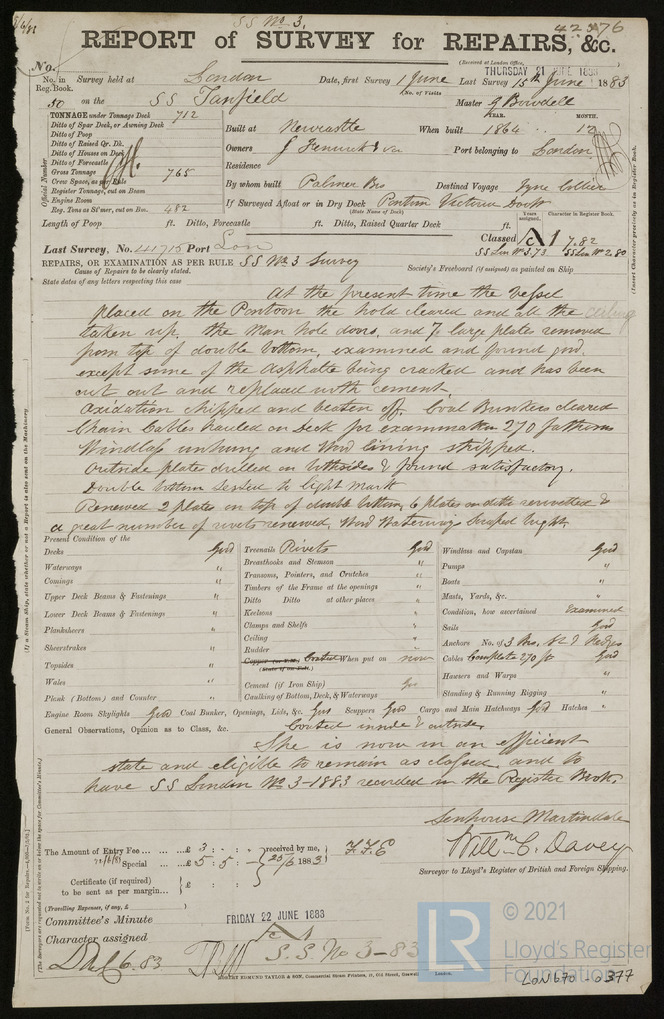 SS No 3.
42376
REPORT of SURVEY for REPAIRS, &c.
(Received at London Office,
THURSDAY 21 JUNE 1883
No.
No. in Reg. Book.
Survey held at London Date, first Survey 1 June Last Survey 15th June 1883
(No. of Visits
50 on the SS Tanfield Master G Bowdell
TONNAGE under Tonnage Deck 712
Ditto of Spar Deck, or Awning Deck
Ditto of Poop
Ditto of Raised Qr. Dk.
Ditto of Houses on Deck
Ditto of Forecastle
Gross Tonnage 765
Crew Space, as per Rule
Register Tonnage, cut on Beam
Engine Room
Reg. Tons as St'mer, cut on Bm. 482
Official Number
YEAR. MONTH.
Built at Newcastle When built 1864 12
Owners J Fenwick & Son Port belonging to London
Residence
By whom built Palmer Bros Destined Voyage Tyne Collier
If Surveyed Afloat or in Dry Dock Pontoon Victoria Dock
(State Name of Dock)
Length of Poop ft. Ditto, Forecastle ft. Ditto, Raised Quarter Deck ft.
Years assigned. Character in Register Book.
Classed A1 7.82
SS Lon No 3.73 SS Lon No 2.80
(Insert Character precisely as in Register Book.
Last Survey, No. 41715 Port Lon
REPAIRS, OR EXAMINATION AS PER RULE SS No 3 Survey
Cause of Repairs to be clearly stated.
Society's Freeboard (if assigned) as painted on Ship
State dates of any letters respecting this case
At the present time the vessel
placed on the Pontoon the hold cleared and all the ceiling
taken up, the man hole doors, and 7 large plates removed
from top of double bottom, examined and found good,
except some of the asphalte being cracked and has been
cut out and replaced with cement,
Oxidation chipped and beaten off, Coal Bunkers cleared
Chain Cables hauled on Deck for examination 270 fathoms
Windlass unhung and Wood lining stripped.
Outside plates drilled on both sides & found satisfactory.
Double bottom tested to light mark
Renewed 2 plates in top of double bottom, 6 plates on ditto reriveted &
a great number of rivets renewed, Wood Waterways scraped bright,
Present Condition of the
Decks Good
Waterways "
Comings "
Upper Deck Beams & Fastenings "
Lower Deck Beams & Fastenings "
Planksheers "
Sheerstrakes "
Topsides "
Wales "
Plank (Bottom) and Counter "
Treenails Rivets Good
Breasthooks and Stemson "
Transoms, Pointers, and Crutches "
Timbers of the Frame at the openings "
Ditto Ditto at other places "
Keelsons "
Clamps and Shelfs "
Ceiling "
Rudder "
Copper Coated When put on now
Cement (if Iron Ship) Good
Caulking of Bottom, Deck, & Waterways
Windlass and Capstan Good
Pumps "
Boats "
Masts, Yards, &c. "
Condition, how ascertained Examined
Sails Good
Anchors No. of 3 Brs.
Cables Complete 270 f Good
Hausers and Warps "
Standing & Running Rigging "
Engine Room Skylights Good Coal Bunker, Openings, Lids, &c. Good Scuppers Good Cargo and Main Hatchways Good Hatches "
General Observations, Opinion as to Class, &c. Coated inside & outside
She is now in an efficient
state and eligible to remain as classed and to
have SS London No 3-1883 recorded in the Register Book.
Senhouse Martindale
Willm C. Davey
Surveyor to Lloyd's Register of British and Foreign Shipping.
The Amount of Entry Fee £ 3 : - : -
Special £ 5 : 5 : -
received by me,
25/6 1883
Certificate (if required) to be sent as per margin £ :
(Travelling Expenses, if any, £ )
Committee's Minute FRIDAY 22 JUNE 1883
Character assigned
S.S. No 3-83
© 2021
LR
Lloyd's Register
Foundation
LON670-0377